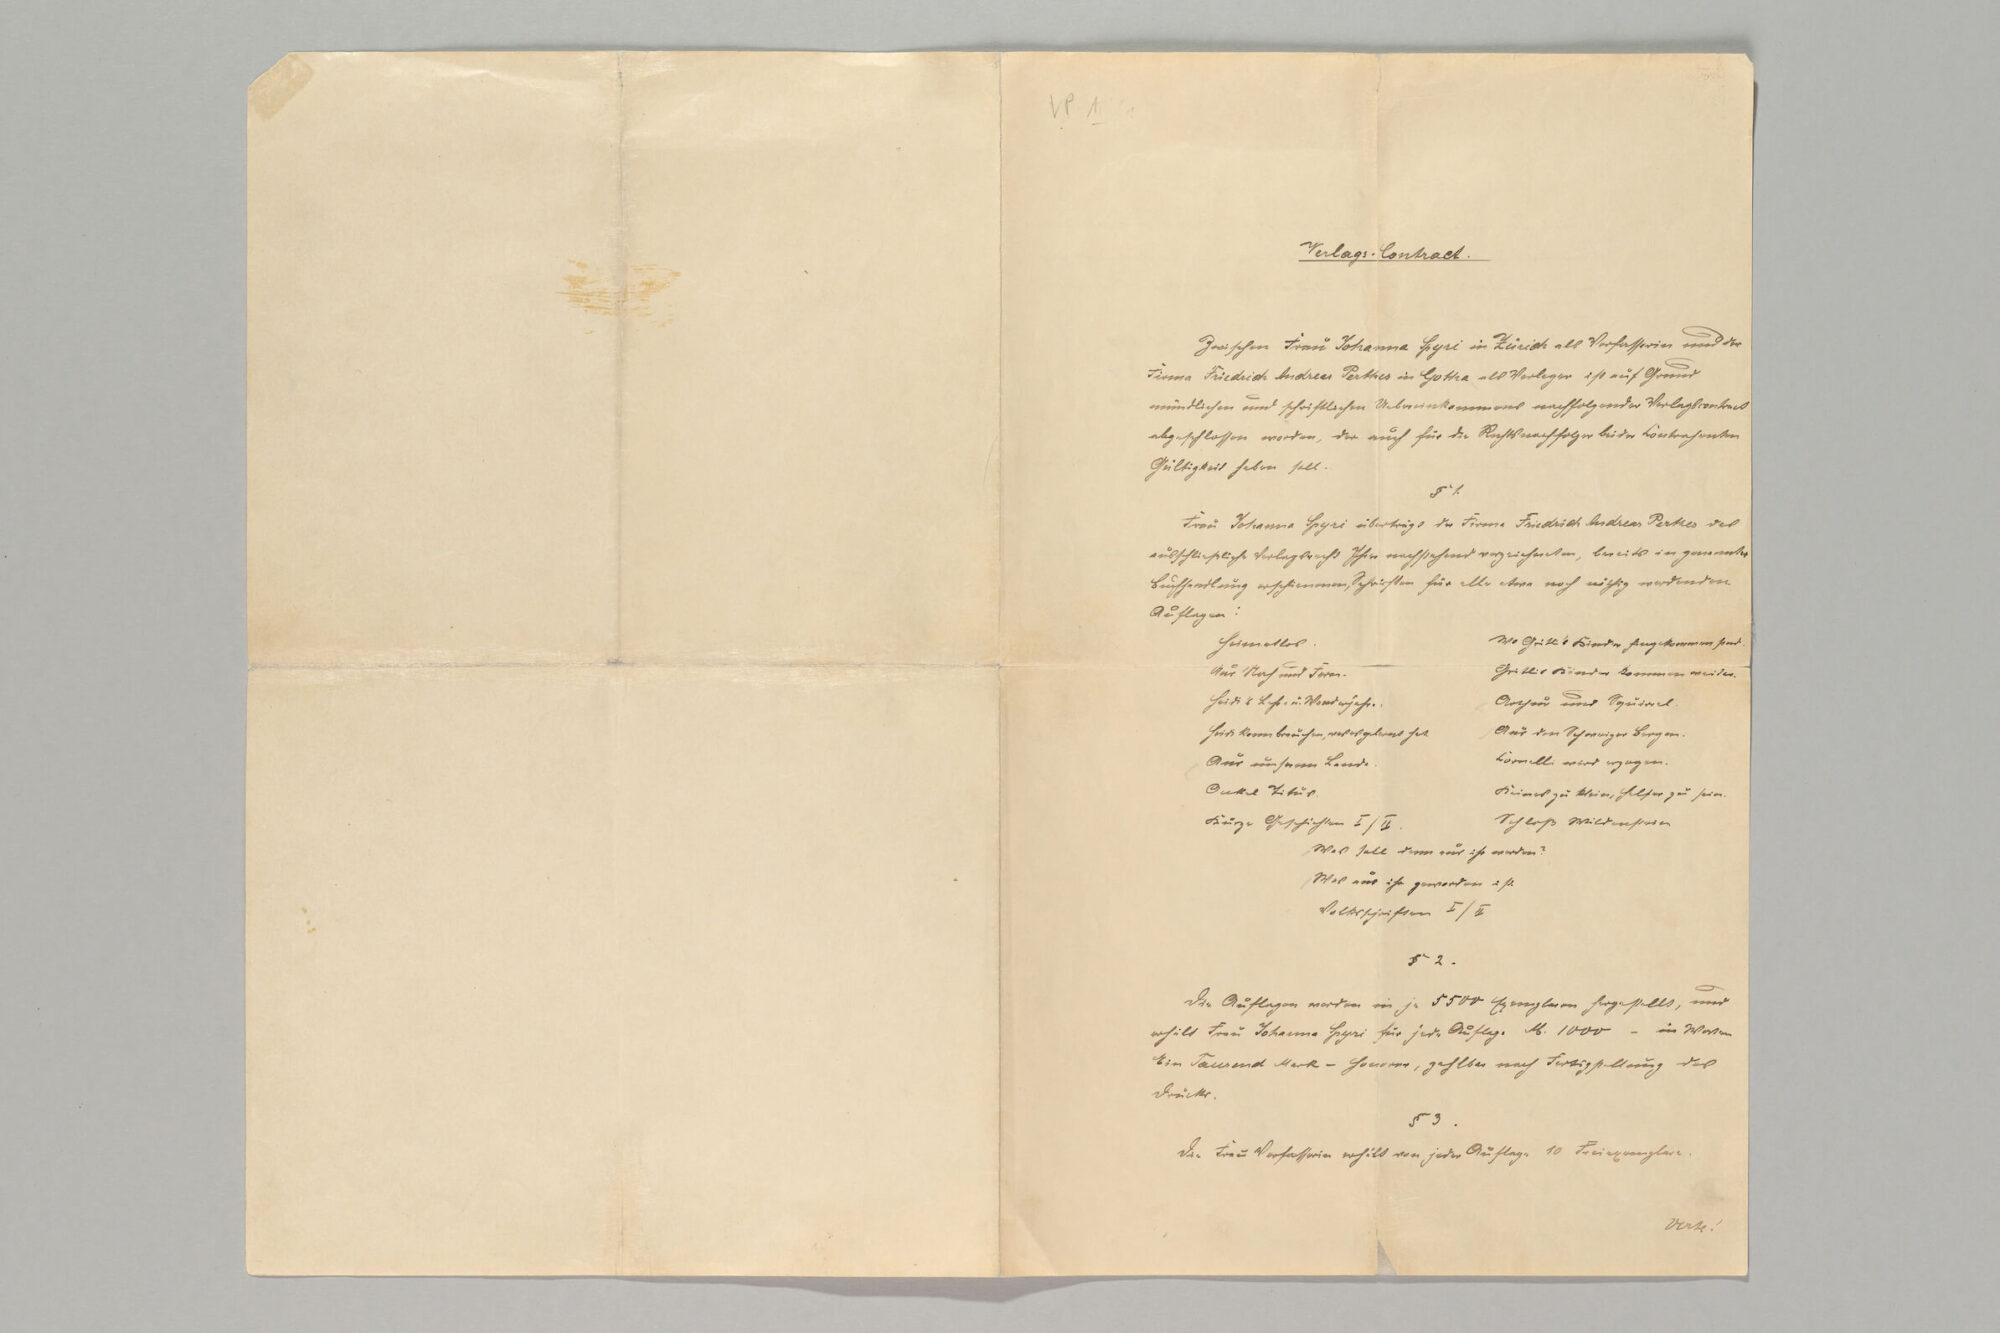 VP 1
Verlags-Contract.
Zwischen Frau Johanna Spyri in Zürich als Verfasserin und der
Firma Friedrich Andreas Perthes in Gotha als Verleger ist auf Grund
mündlichen und schriftlichen Uebereinkommens nachfolgender Verlagscontract
abgeschlossen worden, der auch für die Rechtsnachfolger beider Contrahenten
Gültigkeit haben soll.
§ 1.
Frau Johanna Spyri überträgt der Firma Friedrich Andreas Perthes das
ausschließliche Verlagsrecht Ihrer nachstehend verzeichneten, bereits in genannter
Buchhandlung erschienenen, Schriften für alle etwa noch nöthig werdenden
Auflagen:
Heimatlos. Wo Gritlis Kinder hingekommen sind.
Aus Nah und Fern. Gritlis Kinder kommen weiter.
Heidi's Lehr- u. Wanderjahre. Arthur und Squirrel.
Heidi kann brauchen, was es gelernt hat Aus den Schweizer Bergen.
Aus unserem Lande. Cornelli wird erzogen.
Onkel Titus. Keines zu klein, Helfer zu sein.
Kurze Geschichten I/II. Schloß Wildenstein
Was soll denn aus ihr werden?
Was aus ihr geworden ist
Volksschriften I/II
§ 2.
Die Auflagen werden in je 5500 Exemplaren hergestellt, und
erhält Frau Johanna Spyri für jede Auflage M. 1000 – in Worten
Ein Tausend Mark – Honorar, zahlbar nach Fertigstellung des
Drucks.
§ 3.
Die Frau Verfasserin erhält von jeder Auflage 10 Freiexemplare.
Verte!